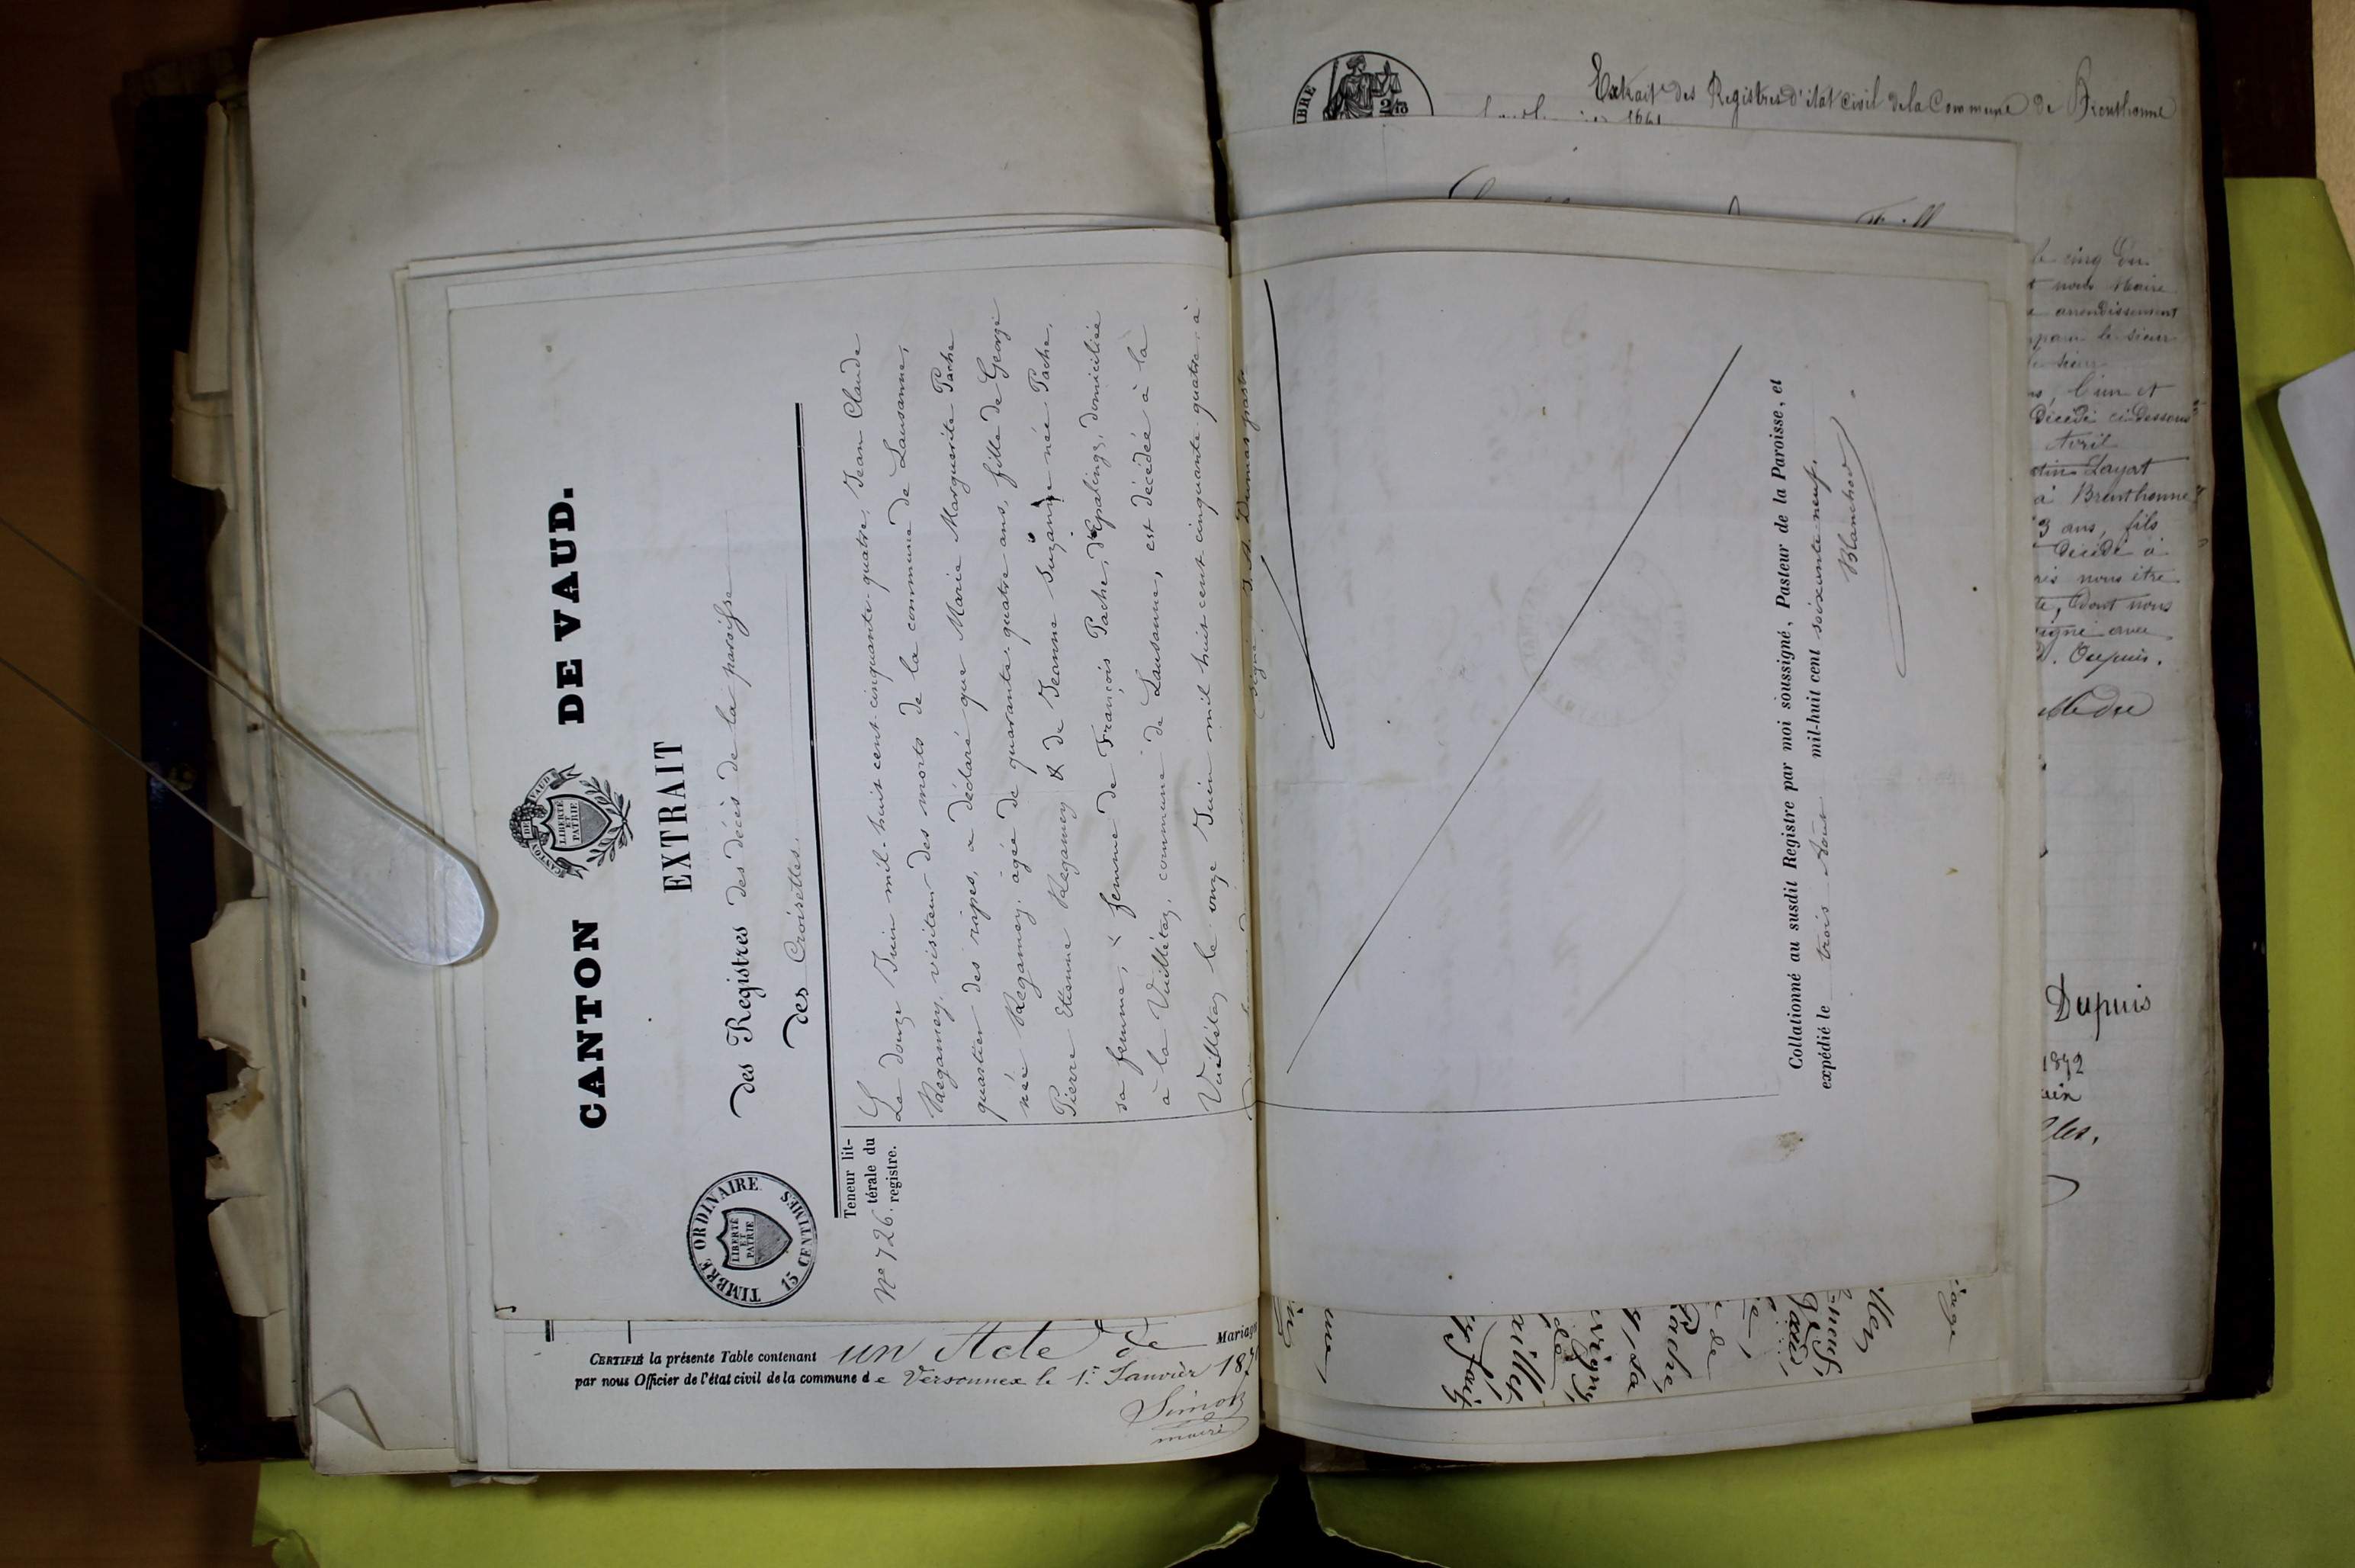 CANTON DE VAUD.
CANTON DE VAUD
LIBERTÉ
ET
PATRIE
EXTRAIT
des Registres des décès de la paroisse
des Croisettes.
TIMBRE ORDINAIRE
LIBERTÉ
ET
PATRIE
15 CENTIMES
Teneur lit-
térale du
registre.
No 726.
Le douze Juin mil-huit cent-cinquante-quatre, Jean Claude
Regamey, visiteur des morts de la commune de Lausanne,
quartier des râpes, a déclaré que Marie Marguerite Pache
née Regamey, âgée de quarante-quatre ans, fille de George
Pierre Etienne Regamey & de Jeanne Suzanne née Pache,
sa femme, & femme de François Pache, d'Epalinges, domiciliée
à la Vuillétaz, commune de Lausanne, est décédée à la
Vuillétaz le onze Juin mil huit cent cinquante-quatre, à
signé: Dumas past
Collationné au susdit Registre par moi soussigné, Pasteur de la Paroisse, et
expédié le trois Août mil-huit cent soixante neuf.
Blanchod
CERTIFIÉ la présente Table contenant un Acte de Mariage
par nous Officier de l'état civil de la commune de Versonnex le 1er Janvier 187
Simon
maire
Extrait des Registres d'état civil de la Commune de Brenthonne
IBRE
1861
le cinq Du
nous Maire
arrondissement
le sieur
le sieur
l'un et
Décédé ci-dessous
Avril
Layat
à Brenthonne
3 ans, fils
Décédé à
nous être
te, Dont nous
signé avec
Dupuis.
Dupuis
1872